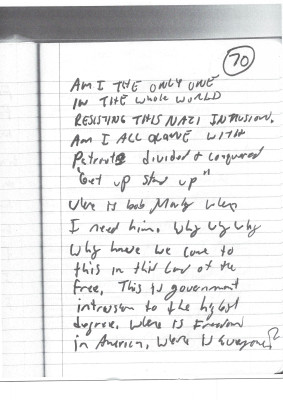 70
AM I THE ONLY ONE
IN THE WHOLE WORLD
RESISTING THIS NAZI INTRUSION.
AM I ALL ALONE WITH
Patriots divided & conquered
"Get up Stand up"
Where is bob Marly when
I need him. Why Why Why
Why have we come to
this in this Land of the
free. This is government
intrusion to the highest
degree. Where is Freedom
in America. Where is everyone?